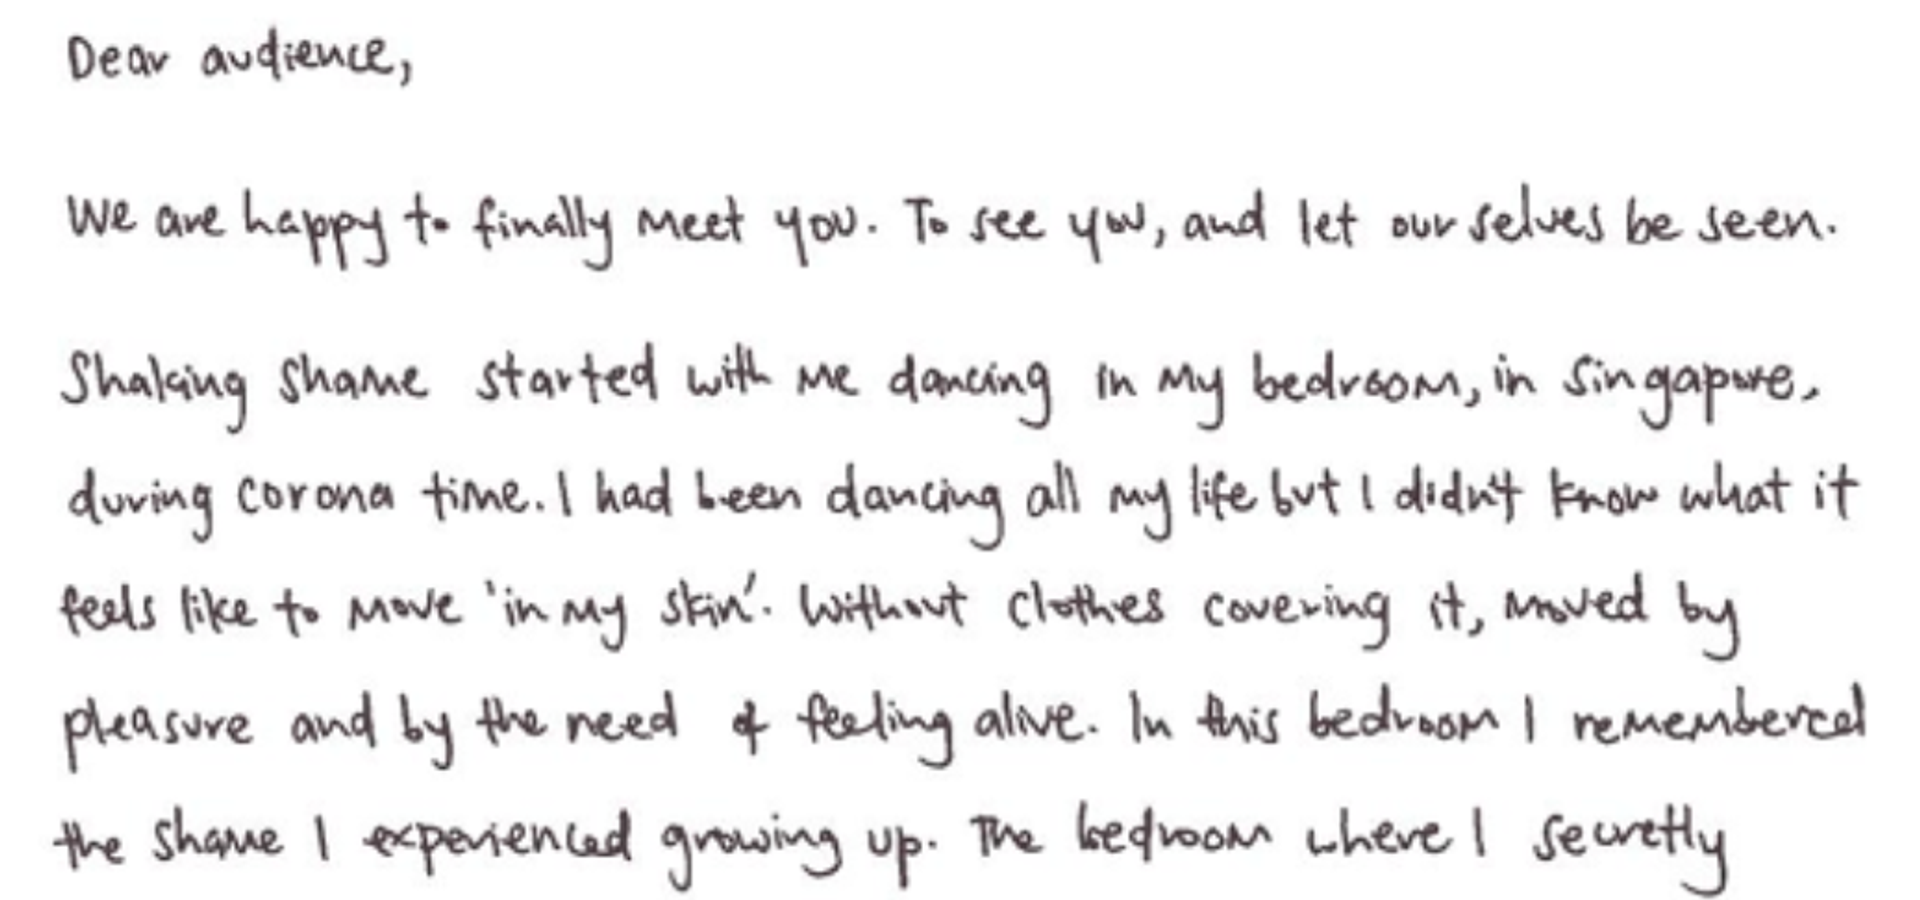 Dear audience,
We are happy to finally meet you. To see you, and let ourselves be seen.
Shaking Shame started with me dancing in my bedroom, in Singapore,
during corona time. I had been dancing all my life but I didn't know what it
feels like to move 'in my skin'. Without clothes covering it, moved by
pleasure and by the need of feeling alive. In this bedroom I remembered
the shame I experienced growing up. The bedroom where I secretly